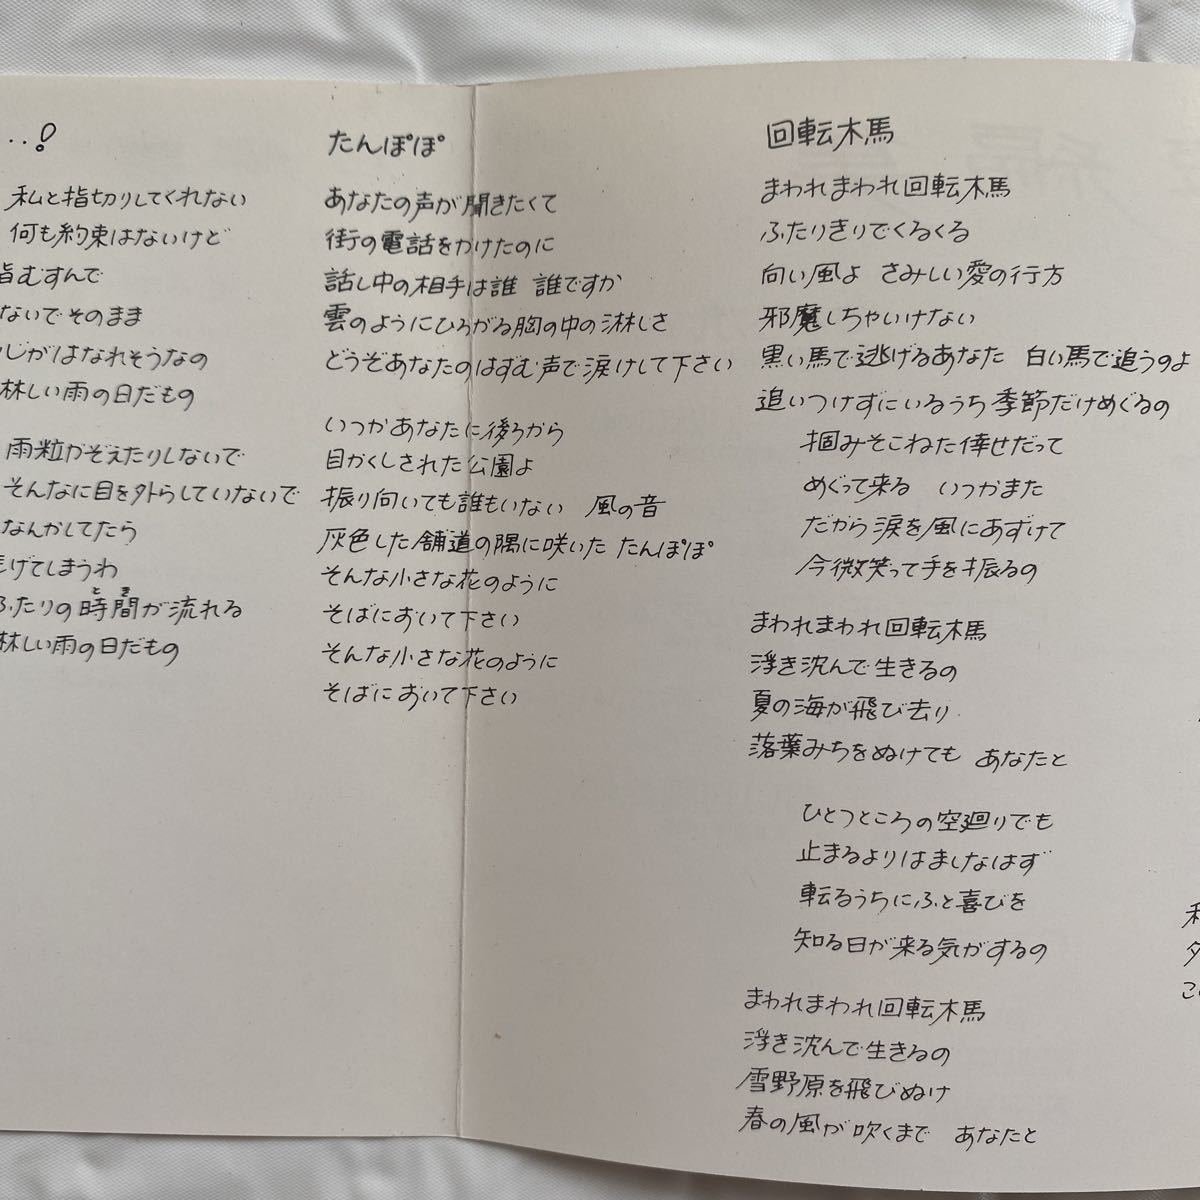 ‥!
私と指切りしてくれない
何も約束はないけど
指むすんで
ないでそのまま
じがはなれそうなの
淋しい雨の日だもの
雨粒かぞえたりしないで
そんなに目を外らしていないで
なんかしてたら
げてしまうわ
ふたりの時間が流れる
とき
淋しい雨の日だもの
たんぽぽ
あなたの声が聞きたくて
街の電話をかけたのに
話し中の相手は誰 誰ですか
雲のようにひろがる胸の中の淋しさ
どうぞあなたのはずむ声で涙けして下さい
いつかあなたに後ろから
目かくしされた公園よ
振り向いても誰もいない 風の音
灰色した舗道の隅に咲いた たんぽぽ
そんな小さな花のように
そばにおいて下さい
そんな小さな花のように
そばにおいて下さい
回転木馬
まわれまわれ回転木馬
ふたりきりでくるくる
向い風よ さみしい愛の行方
邪魔しちゃいけない
黒い馬で逃げるあなた 白い馬で追うのよ
追いつけずにいるうち季節だけめぐるの
掴みそこねた倖せだって
めぐって来る いつかまた
だから涙を風にあずけて
今微笑って手を振るの
まわれまわれ回転木馬
浮き沈んで生きるの
夏の海が飛び去り
落葉みちをぬけても あなたと
ひとつところの空廻りでも
止まるよりはましなはず
転るうちにふと喜びを
知る日が来る気がするの
まわれまわれ回転木馬
浮き沈んで生きるの
雪野原を飛びぬけ
春の風が吹くまで あなたと